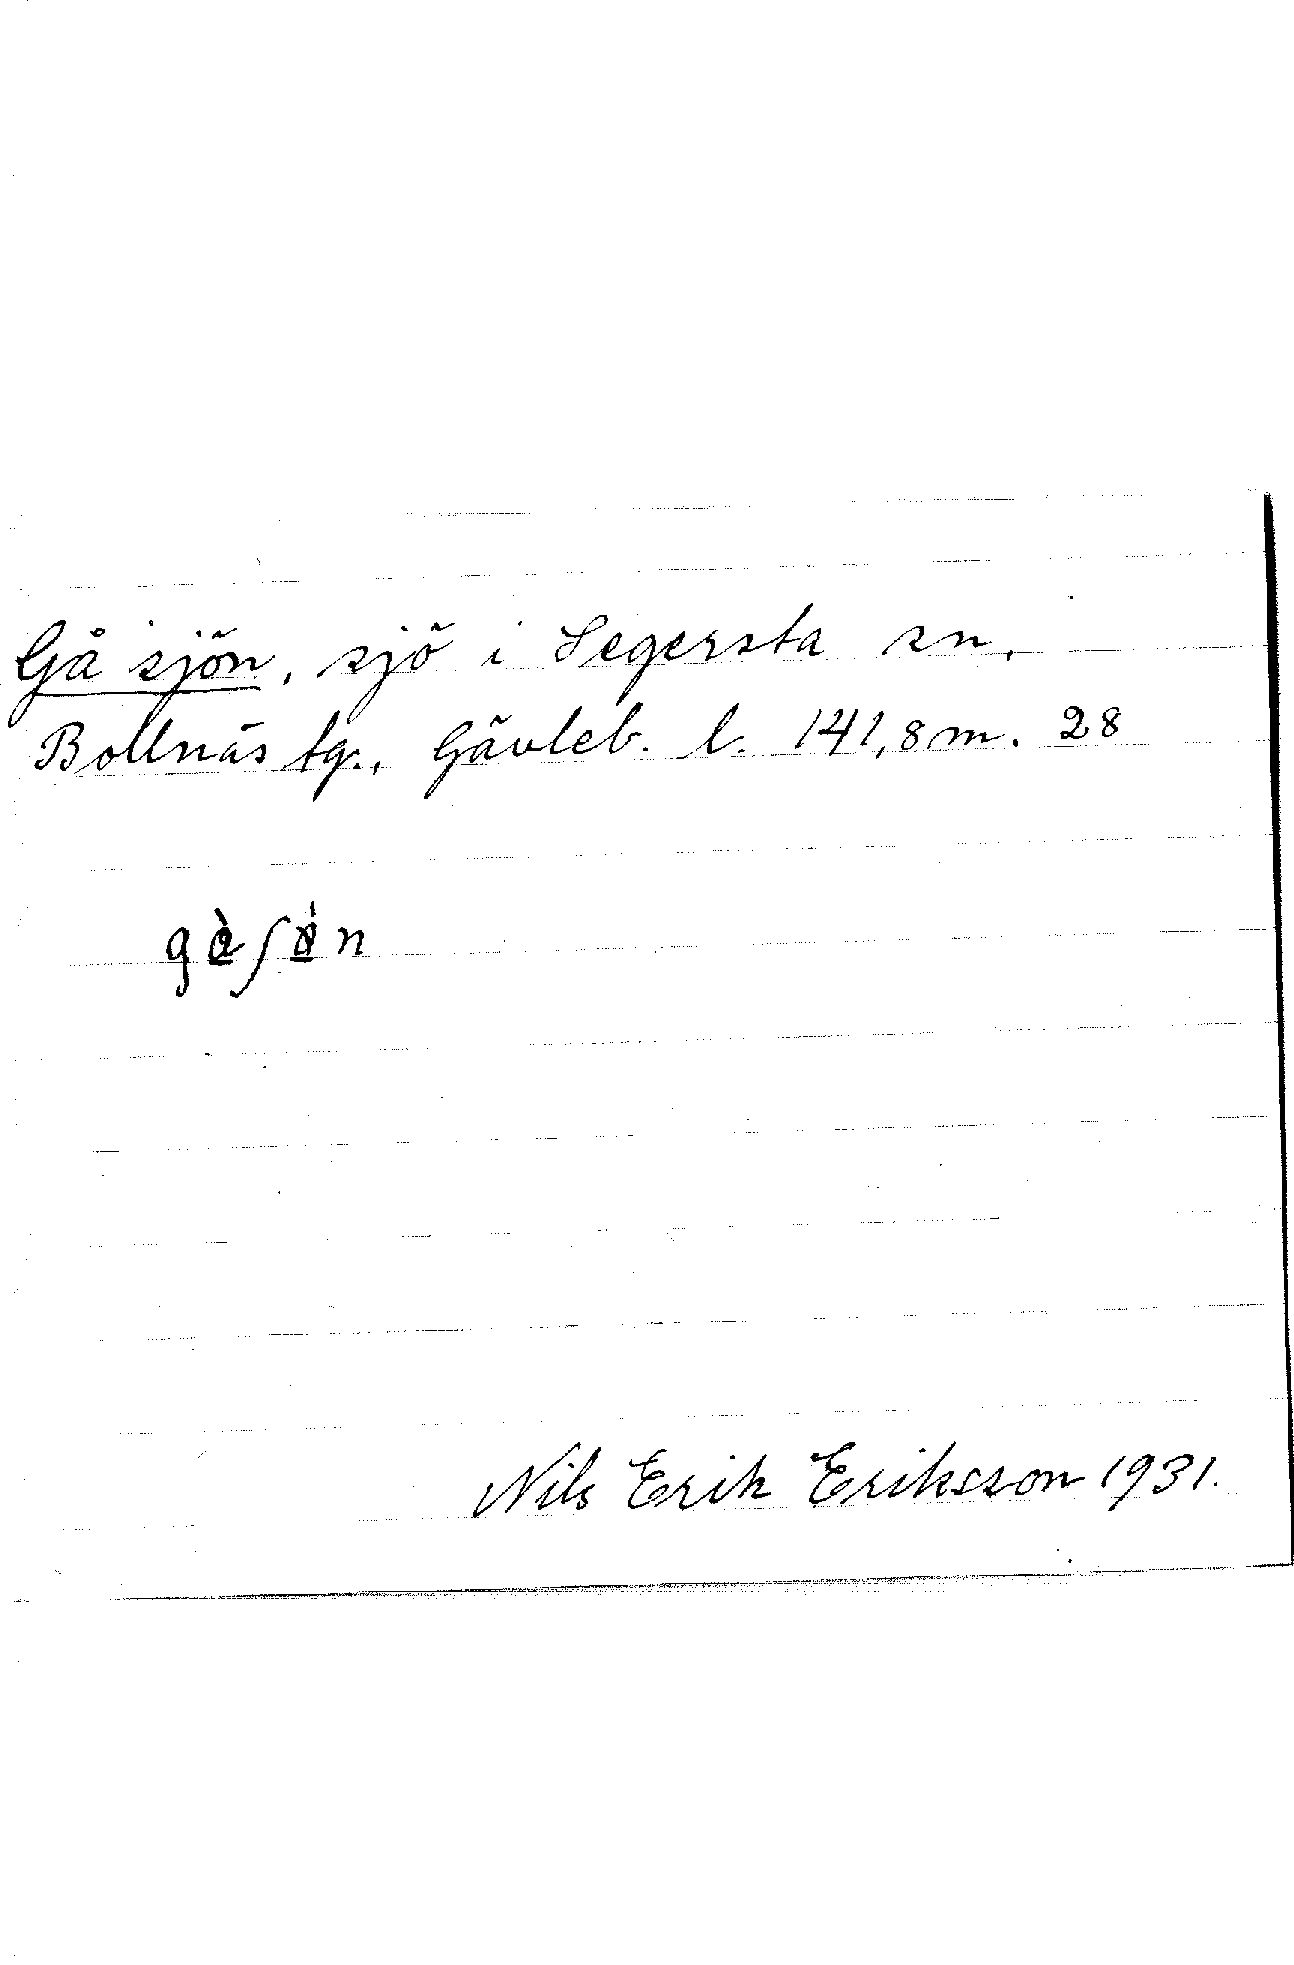 Gåsjön, sjö i Segersta sn.
Bollnäs tg., Gävleb. l. 141,8 m. 28
Nils Erik Eriksson 1931.